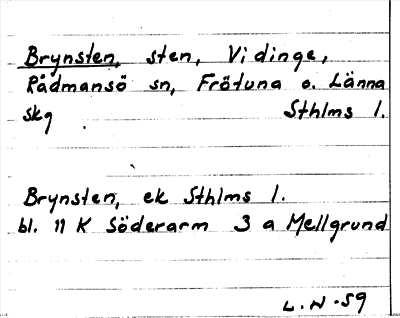 Brynsten, sten, Vidinge,
Rådmansö sn, Frötuna o. Länna
skg Sthlms l.
Brynsten, ek Sthlms l.
bl. 11 K Söderarm 3 a Mellgrund
L. N -59